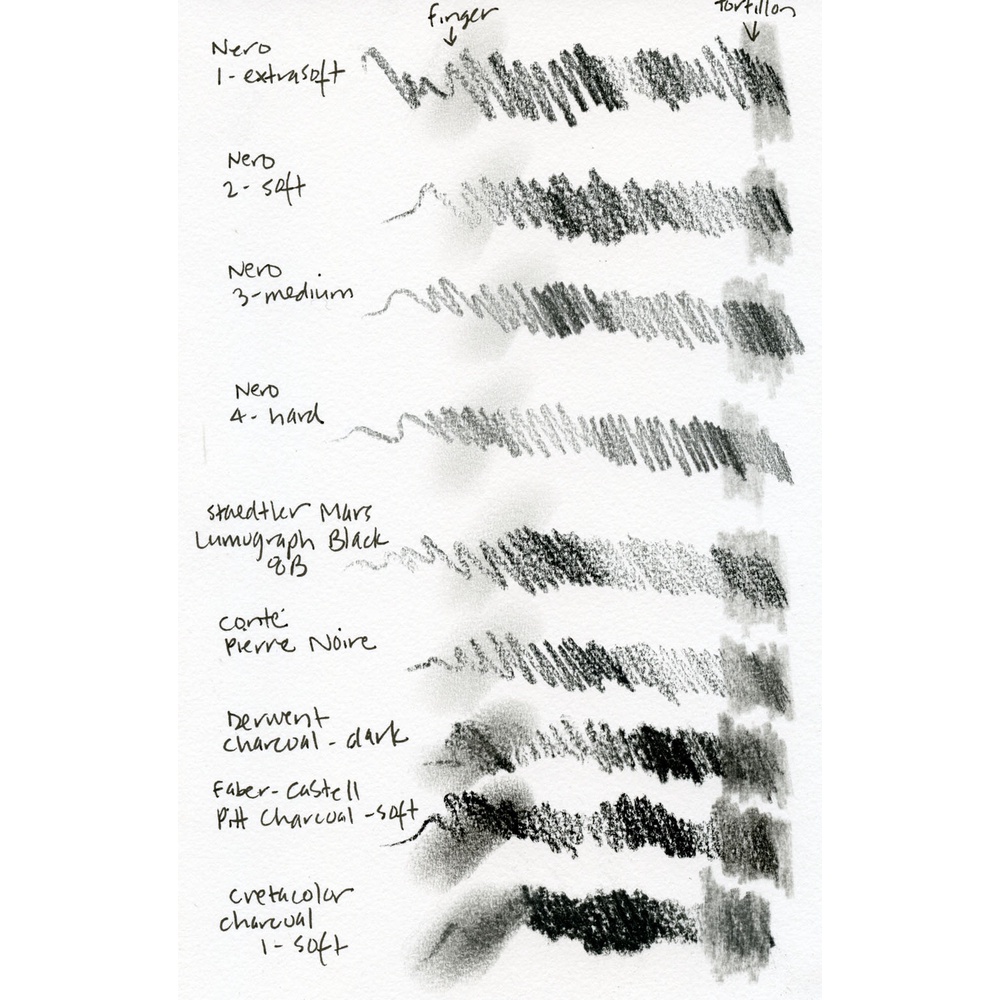 finger
tortillon
Nero
1-extrasoft
Nero
2-soft
Nero
3-medium
Nero
4-hard
Staedtler Mars
Lumograph Black
8B
conté
Pierre Noire
Derwent
charcoal-dark
Faber-Castell
Pitt Charcoal-soft
cretacolor
charcoal
1-soft